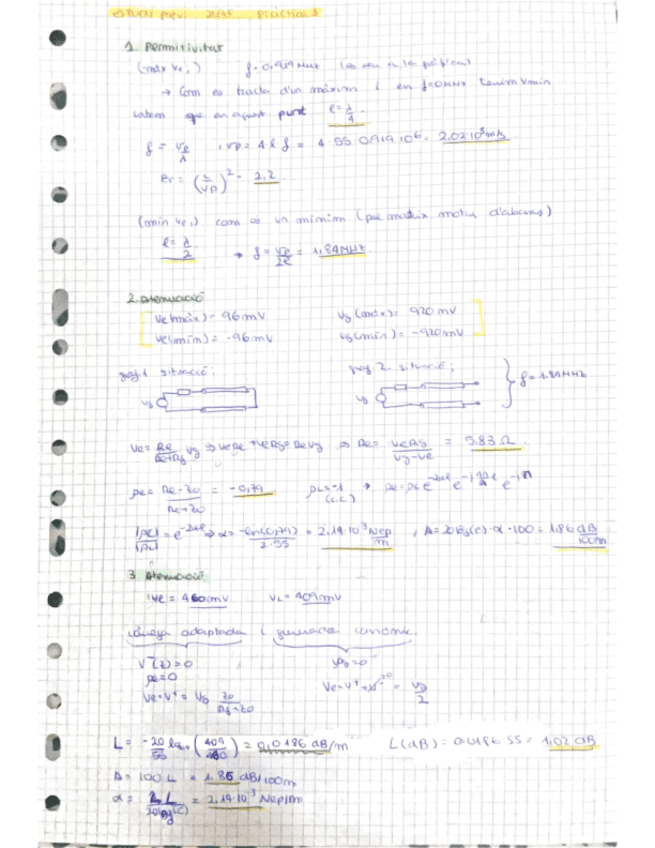 1. Permitivitat
(màx Ve;) f=0,919MHz
→ Com es tracta d'un màxim i en f=0MHz tenim Vmin
sabem que en aquest punt l=λ/4.
f = vp/λ , vp= 4·l·f = 4·55·0,919·10⁶ = 2,02·10⁸m/s
Er= (c/vp)² = 2,2.
(min Ve,) com es un mínim (pel mateix motiu d'abans)
l= λ/2. → f= vp/2l = 1,84MHz
2. Atenuació
Ve(màx)= 96mV Vg(màx)= 920mV
Ve(mín)= -96mV Vg(mín)= -920mV
1. situació; 2. situació; f=1.84MHz
Vg Vg
Ve= Re/(Re+Rg) Vg ⇒ VeRe+VeRg=ReVg ⇒ Re= VeRg/(Vg-Ve) = 5.83Ω.
ρe= (Re-Z0)/(Re+Z0) = -0,79 ρL=-1 (c.c)
|ρe|/|ρL| = e^-2αl ⇒ α= -ln(0,792)/2·55 = 2,14·10⁻³ Nep/m , A=20log(e)·α·100 = 1.86 dB/100m
3 Atenuació
Ve= 460mV VL= 409mV
càrrega adaptada i generador canònic.
V⁻(z)=0 ρg=0
ρe=0
Ve=V⁺= Vg Z0/(Rg+Z0) = Vg/2
L= -20/55 log₁₀(409/460) = 0,0186 dB/m L(dB)= 0,0186·55 = 1,02dB
A= 100 L = 1,86 dB/100m
α= L/20log(e) = 2,14·10⁻³ Nep/m